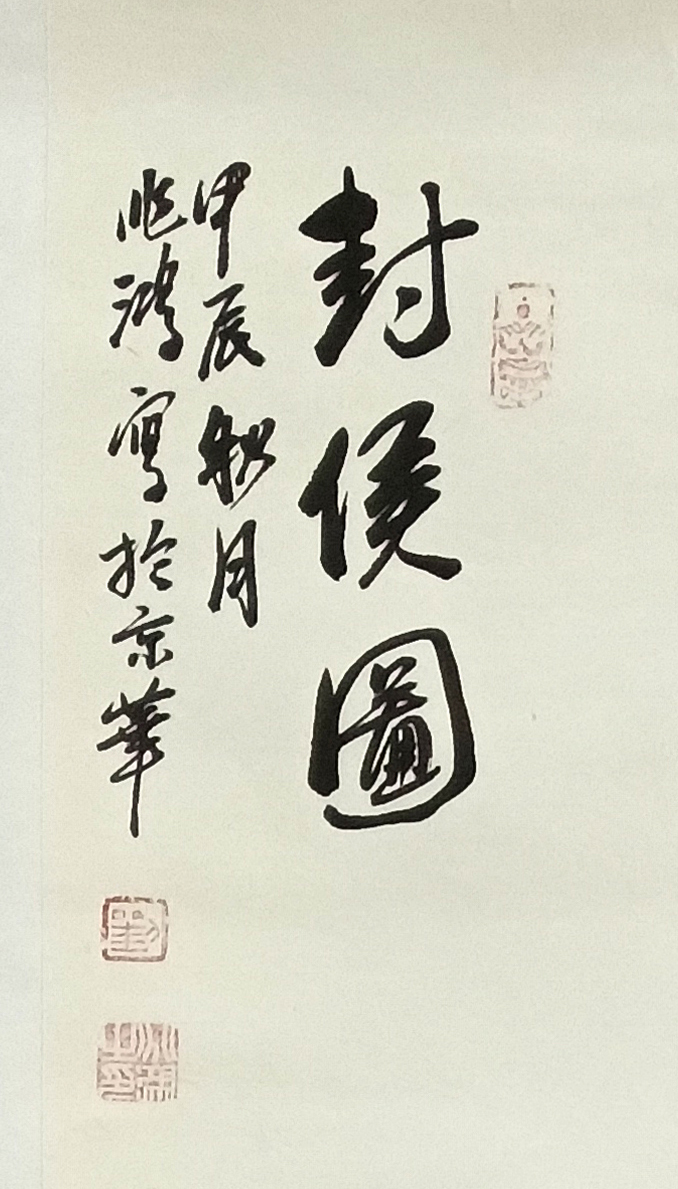 封侯圖
甲辰秋月
兆鴻寫於京華